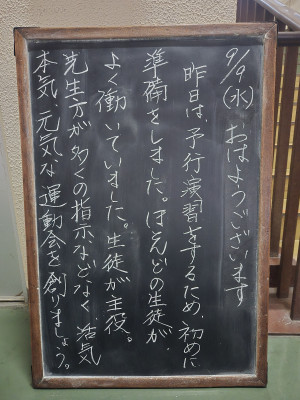 9/9(水) おはようございます
昨日は、予行演習をするため、初めに
準備をしました。ほとんどの生徒が、
よく働いていました。生徒が主役。
先生方が多くの指示などなく、活気
本気、元気な運動会を創りましょう。